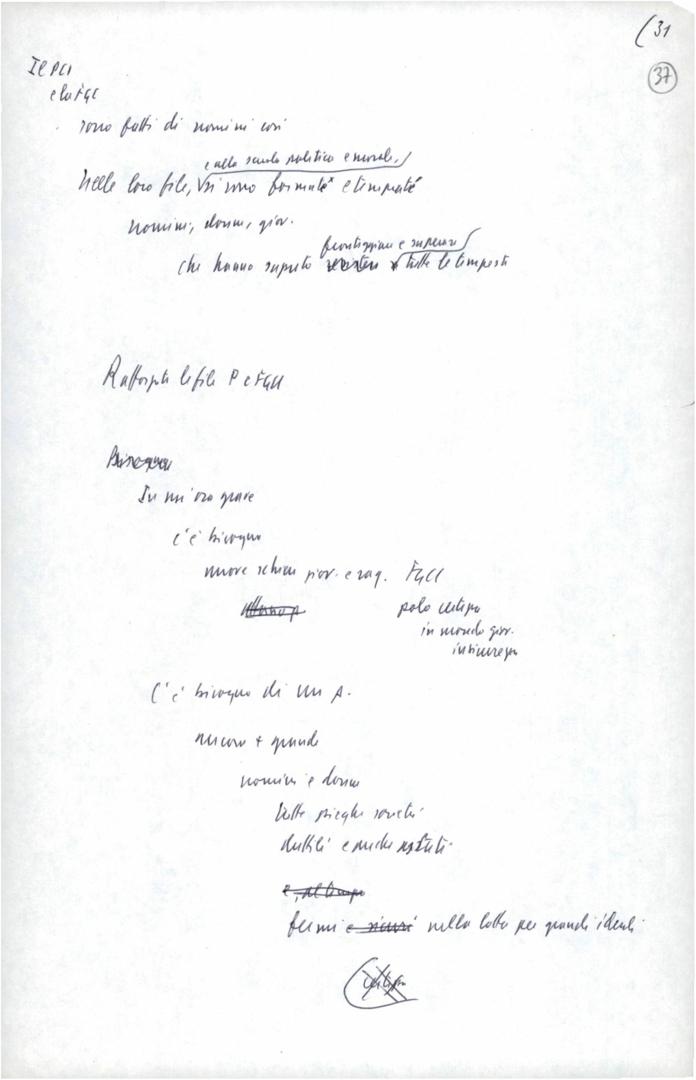 (31
37
Il PCI
e la FGC
sono fatti di uomini così
e alla scuola politica e morale,
Nelle loro file, si sono formate e temprate
uomini, donne, giov.
fronteggiare e superare
che hanno saputo tutte le tempeste
le file P e FGCI
Bisogna
In un'ora grave
c'è bisogno
nuove schiere giov. e rag. FGCI
polo
in mondo giov.
C'è bisogno di un P.
ancora + grande
uomini e donne
tutte pieghe società
duttili e anche astuti
e, al tempo
fermi e sicuri nella lotta per grandi ideali